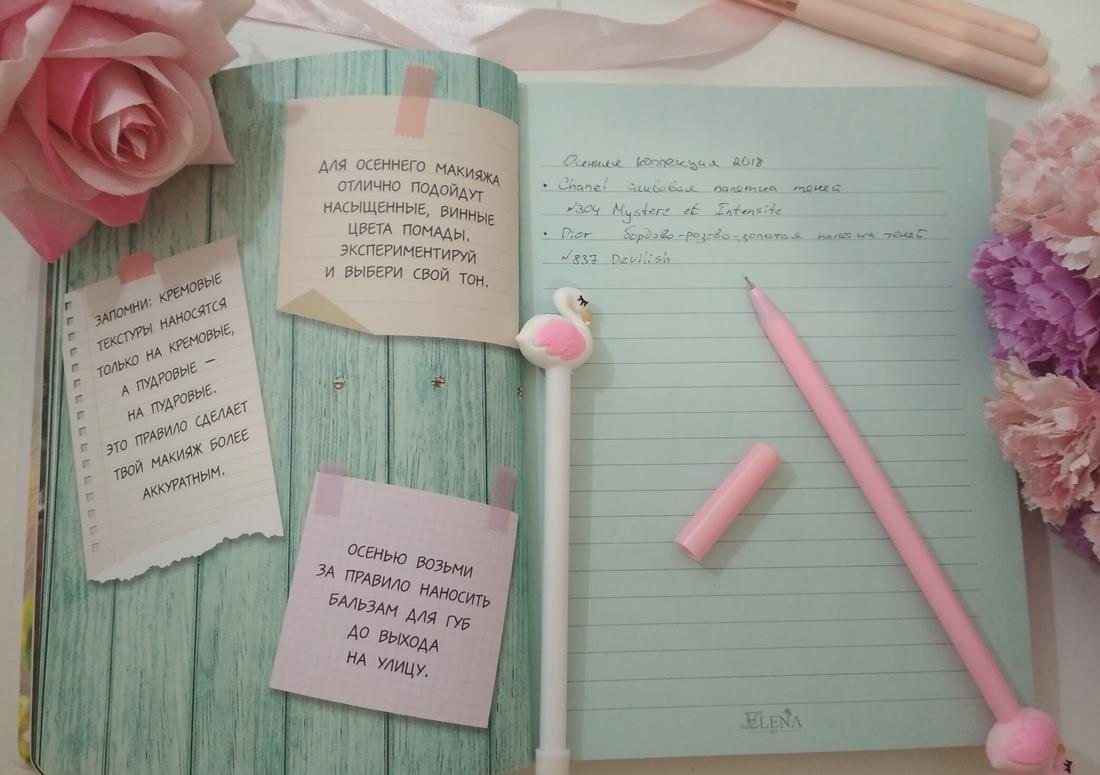 ДЛЯ ОСЕННЕГО МАКИЯЖА
ОТЛИЧНО ПОДОЙДУТ
НАСЫЩЕННЫЕ, ВИННЫЕ
ЦВЕТА ПОМАДЫ.
ЭКСПЕРИМЕНТИРУЙ
И ВЫБЕРИ СВОЙ ТОН.
ЗАПОМНИ: КРЕМОВЫЕ
ТЕКСТУРЫ НАНОСЯТСЯ
ТОЛЬКО НА КРЕМОВЫЕ,
А ПУДРОВЫЕ –
НА ПУДРОВЫЕ.
ЭТО ПРАВИЛО СДЕЛАЕТ
ТВОЙ МАКИЯЖ БОЛЕЕ
АККУРАТНЫМ.
ОСЕНЬЮ ВОЗЬМИ
ЗА ПРАВИЛО НАНОСИТЬ
БАЛЬЗАМ ДЛЯ ГУБ
ДО ВЫХОДА
НА УЛИЦУ.
Осенняя коллекция 2018
• Chanel сливовая палетка теней
№304 Mystere et Intensite
• Dior бордово-розово-золотая палетка теней
№837 Devilish
ELENA